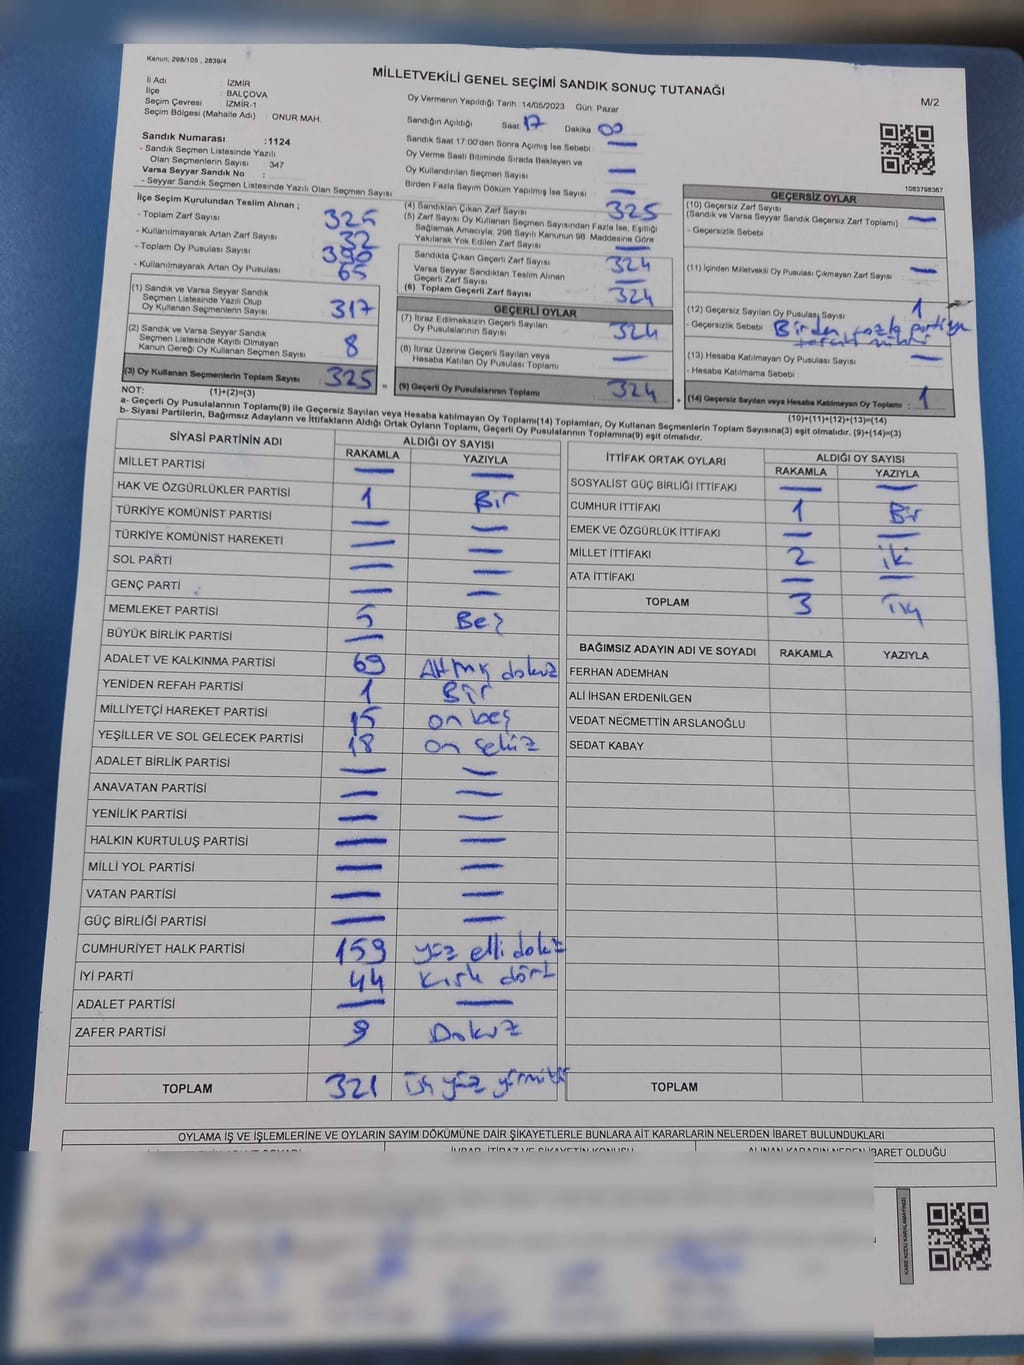 Kanun: 298/105 , 2839/4
MİLLETVEKİLİ GENEL SEÇİMİ SANDIK SONUÇ TUTANAĞI
M/2
İl Adı : İZMİR
İlçe : BALÇOVA
Seçim Çevresi : İZMİR-1
Seçim Bölgesi (Mahalle Adı) : ONUR MAH.
Sandık Numarası :1124
- Sandık Seçmen Listesinde Yazılı
Olan Seçmenlerin Sayısı : 347
Varsa Seyyar Sandık No :
- Seyyar Sandık Seçmen Listesinde Yazılı Olan Seçmen Sayısı :
Oy Vermenin Yapıldığı Tarih :14/05/2023 Gün: Pazar
Sandığın Açıldığı Saat 17 Dakika 00
Sandık Saat 17:00'den Sonra Açılmış İse Sebebi : —
Oy Verme Saati Bitiminde Sırada Bekleyen ve
Oy Kullandırılan Seçmen Sayısı : —
Birden Fazla Sayım Döküm Yapılmış İse Sayısı : —
1083798367
İlçe Seçim Kurulundan Teslim Alınan ;
- Toplam Zarf Sayısı : 325
- Kullanılmayarak Artan Zarf Sayısı : 32
- Toplam Oy Pusulası Sayısı : 390
- Kullanılmayarak Artan Oy Pusulası : 65
(1) Sandık ve Varsa Seyyar Sandık
Seçmen Listesinde Yazılı Olup
Oy Kullanan Seçmenlerin Sayısı : 317
(2) Sandık ve Varsa Seyyar Sandık
Seçmen Listesinde Kayıtlı Olmayan
Kanun Gereği Oy Kullanan Seçmen Sayısı : 8
(3) Oy Kullanan Seçmenlerin Toplam Sayısı : 325 =
(4) Sandıktan Çıkan Zarf Sayısı : 325
(5) Zarf Sayısı Oy Kullanan Seçmen Sayısından Fazla İse, Eşitliği
Sağlamak Amacıyla, 298 Sayılı Kanunun 98. Maddesine Göre
Yakılarak Yok Edilen Zarf Sayısı : —
Sandıkta Çıkan Geçerli Zarf Sayısı : 324
Varsa Seyyar Sandıktan Teslim Alınan
Geçerli Zarf Sayısı : —
(6) Toplam Geçerli Zarf Sayısı : 324
GEÇERLİ OYLAR
(7) İtiraz Edilmeksizin Geçerli Sayılan
Oy Pusulalarının Sayısı : 324
(8) İtiraz Üzerine Geçerli Sayılan veya
Hesaba Katılan Oy Pusulası Toplamı : —
(9) Geçerli Oy Pusulalarının Toplamı : 324 +
GEÇERSİZ OYLAR
(10) Geçersiz Zarf Sayısı : —
(Sandık ve Varsa Seyyar Sandık Geçersiz Zarf Toplamı)
- Geçersizlik Sebebi :
(11) İçinden Milletvekili Oy Pusulası Çıkmayan Zarf Sayısı : —
(12) Geçersiz Sayılan Oy Pusulası Sayısı : 1
- Geçersizlik Sebebi : Birden fazla partiye
(13) Hesaba Katılmayan Oy Pusulası Sayısı : —
- Hesaba Katılmama Sebebi :
(14) Geçersiz Sayılan veya Hesaba Katılmayan Oy Toplamı : 1
NOT: (1)+(2)=(3)
(10)+(11)+(12)+(13)=(14)
a- Geçerli Oy Pusulalarının Toplamı(9) ile Geçersiz Sayılan veya Hesaba katılmayan Oy Toplamı(14) Toplamları, Oy Kullanan Seçmenlerin Toplam Sayısına(3) eşit olmalıdır. (9)+(14)=(3)
b- Siyasi Partilerin, Bağımsız Adayların ve İttifakların Aldığı Ortak Oyların Toplamı, Geçerli Oy Pusulalarının Toplamına(9) eşit olmalıdır.
SİYASİ PARTİNİN ADI ALDIĞI OY SAYISI
RAKAMLA YAZIYLA
MİLLET PARTİSİ — —
HAK VE ÖZGÜRLÜKLER PARTİSİ 1 Bir
TÜRKİYE KOMÜNİST PARTİSİ — —
TÜRKİYE KOMÜNİST HAREKETİ — —
SOL PARTİ — —
GENÇ PARTİ — —
MEMLEKET PARTİSİ 5 Beş
BÜYÜK BİRLİK PARTİSİ —
ADALET VE KALKINMA PARTİSİ 69 Altmış dokuz
YENİDEN REFAH PARTİSİ 1 Bir
MİLLİYETÇİ HAREKET PARTİSİ 15 on beş
YEŞİLLER VE SOL GELECEK PARTİSİ 18 on sekiz
ADALET BİRLİK PARTİSİ — —
ANAVATAN PARTİSİ — —
YENİLİK PARTİSİ — —
HALKIN KURTULUŞ PARTİSİ — —
MİLLİ YOL PARTİSİ — —
VATAN PARTİSİ — —
GÜÇ BİRLİĞİ PARTİSİ — —
CUMHURİYET HALK PARTİSİ 159 yüz elli dokuz
İYİ PARTİ 44 Kırk dört
ADALET PARTİSİ — —
ZAFER PARTİSİ 9 Dokuz
TOPLAM 321 üç yüz yirmi bir
İTTİFAK ORTAK OYLARI ALDIĞI OY SAYISI
RAKAMLA YAZIYLA
SOSYALİST GÜÇ BİRLİĞİ İTTİFAKI — —
CUMHUR İTTİFAKI 1 Bir
EMEK VE ÖZGÜRLÜK İTTİFAKI — —
MİLLET İTTİFAKI 2 iki
ATA İTTİFAKI — —
TOPLAM 3 üç
BAĞIMSIZ ADAYIN ADI VE SOYADI RAKAMLA YAZIYLA
FERHAN ADEMHAN
ALİ İHSAN ERDENİLGEN
VEDAT NECMETTİN ARSLANOĞLU
SEDAT KABAY
TOPLAM
OYLAMA İŞ VE İŞLEMLERİNE VE OYLARIN SAYIM DÖKÜMÜNE DAİR ŞİKAYETLERLE BUNLARA AİT KARARLARIN NELERDEN İBARET BULUNDUKLARI
İHBAR, İTİRAZ VE ŞİKAYETİN KONUSU ALINAN KARARIN NEDEN İBARET OLDUĞU
KARE KODU KARALAMAYINIZ!